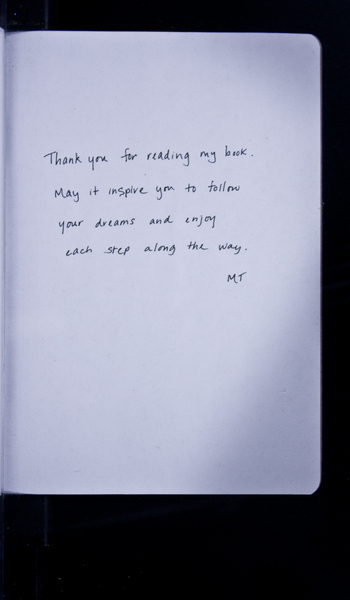 Thank you for reading my book.
May it inspire you to follow
your dreams and enjoy
each step along the way.
MT